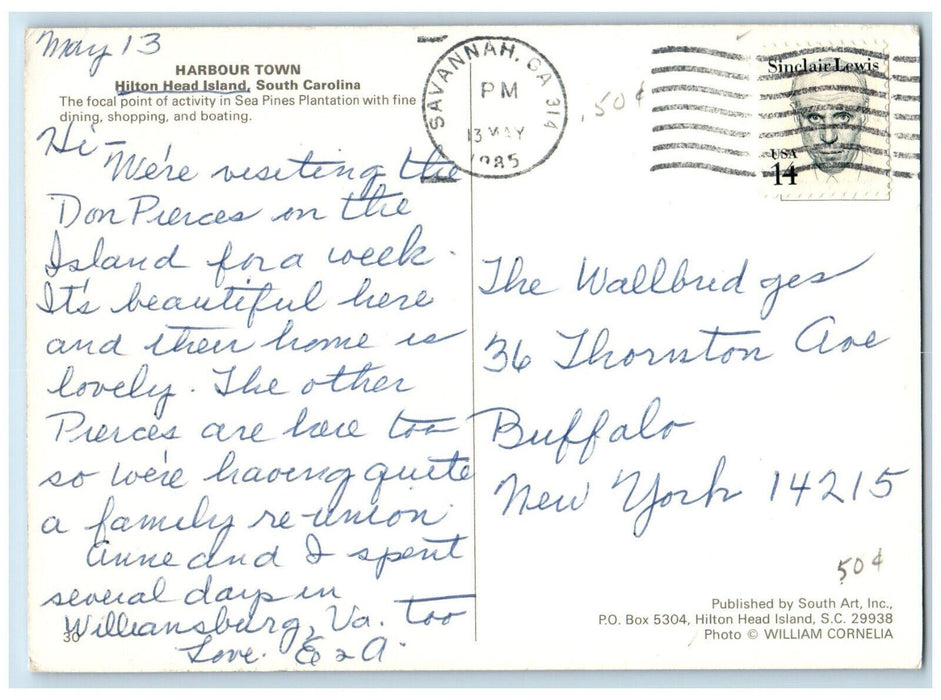 May 13
HARBOUR TOWN
Hilton Head Island, South Carolina
The focal point of activity in Sea Pines Plantation with fine
dining, shopping, and boating.
Hi-
We're visiting the
Don Pierces on the
Island for a week.
It's beautiful here
and their home is
lovely. The other
Pierces are here too
so we're having quite
a family re-union
Anne and I spent
several days in
Williamsburg, Va. too
Love. E & A.
30
SAVANNAH, GA 314
PM
13 MAY
1985
.50¢
Sinclair Lewis
USA
14
The Wallbridges
36 Thornton Ave
Buffalo
New York 14215
50¢
Published by South Art, Inc.,
P.O. Box 5304, Hilton Head Island, S.C. 29938
Photo © WILLIAM CORNELIA